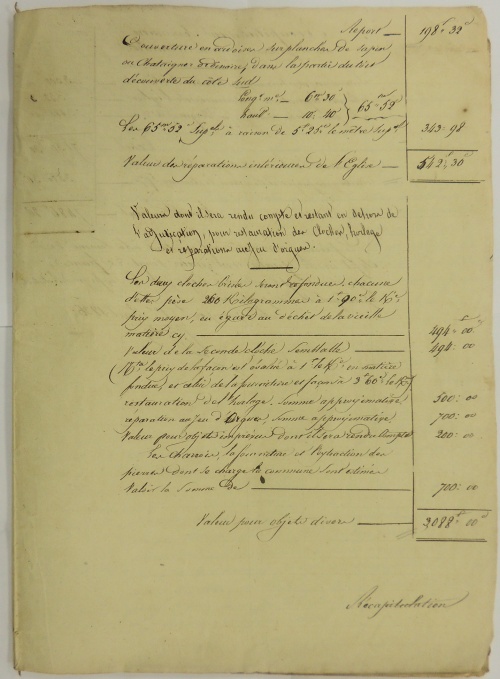 Report — 198f 32c
Couverture en ardoises sur planches de sapin
ou Chataignier ordinaire, dans la partie du toit
découverte du côté sud
Longr m. — 6m 30c
haut. — 10, 40 } 65m 52c
Les 65m 52c Supels à raison de 5f 25c le mètre Supel 343 98
Valeur des réparations intérieures de l'Eglise — 542f, 30c
Valeurs dont il sera rendu compte et restant en dehors de
l'adjudication, pour restauration des Cloches, horloge
et réparations au jeu d'orgues.
Les deux cloches brisées seront refondues, chacune
d'elles pèse 260 Kilogrammes à 1f 90c le Ko
prix moyen, eu égard au déchet de la vieille
matière cy — 494f = 00c
Valeur de la Seconde cloche Semblable — 494 = 00
Nta le prix de la façon est évalué à 1f le Ko en matière
fondue, et celui de la fourniture et façon à 3f 60c le Ko
restauration de l'horloge, somme approximative 500 = 00
réparation au jeu d'Orgues, somme approximative 700 = 00
Valeur pour objets imprévus dont il sera rendu compte 200 = 00
Les charrois, la fourniture et l'extraction des
pierres dont se charge la commune sont estimés
Valoir la Somme de — 700 = 00
Valeur pour objets divers — 3,088f = 00c
Récapitulation